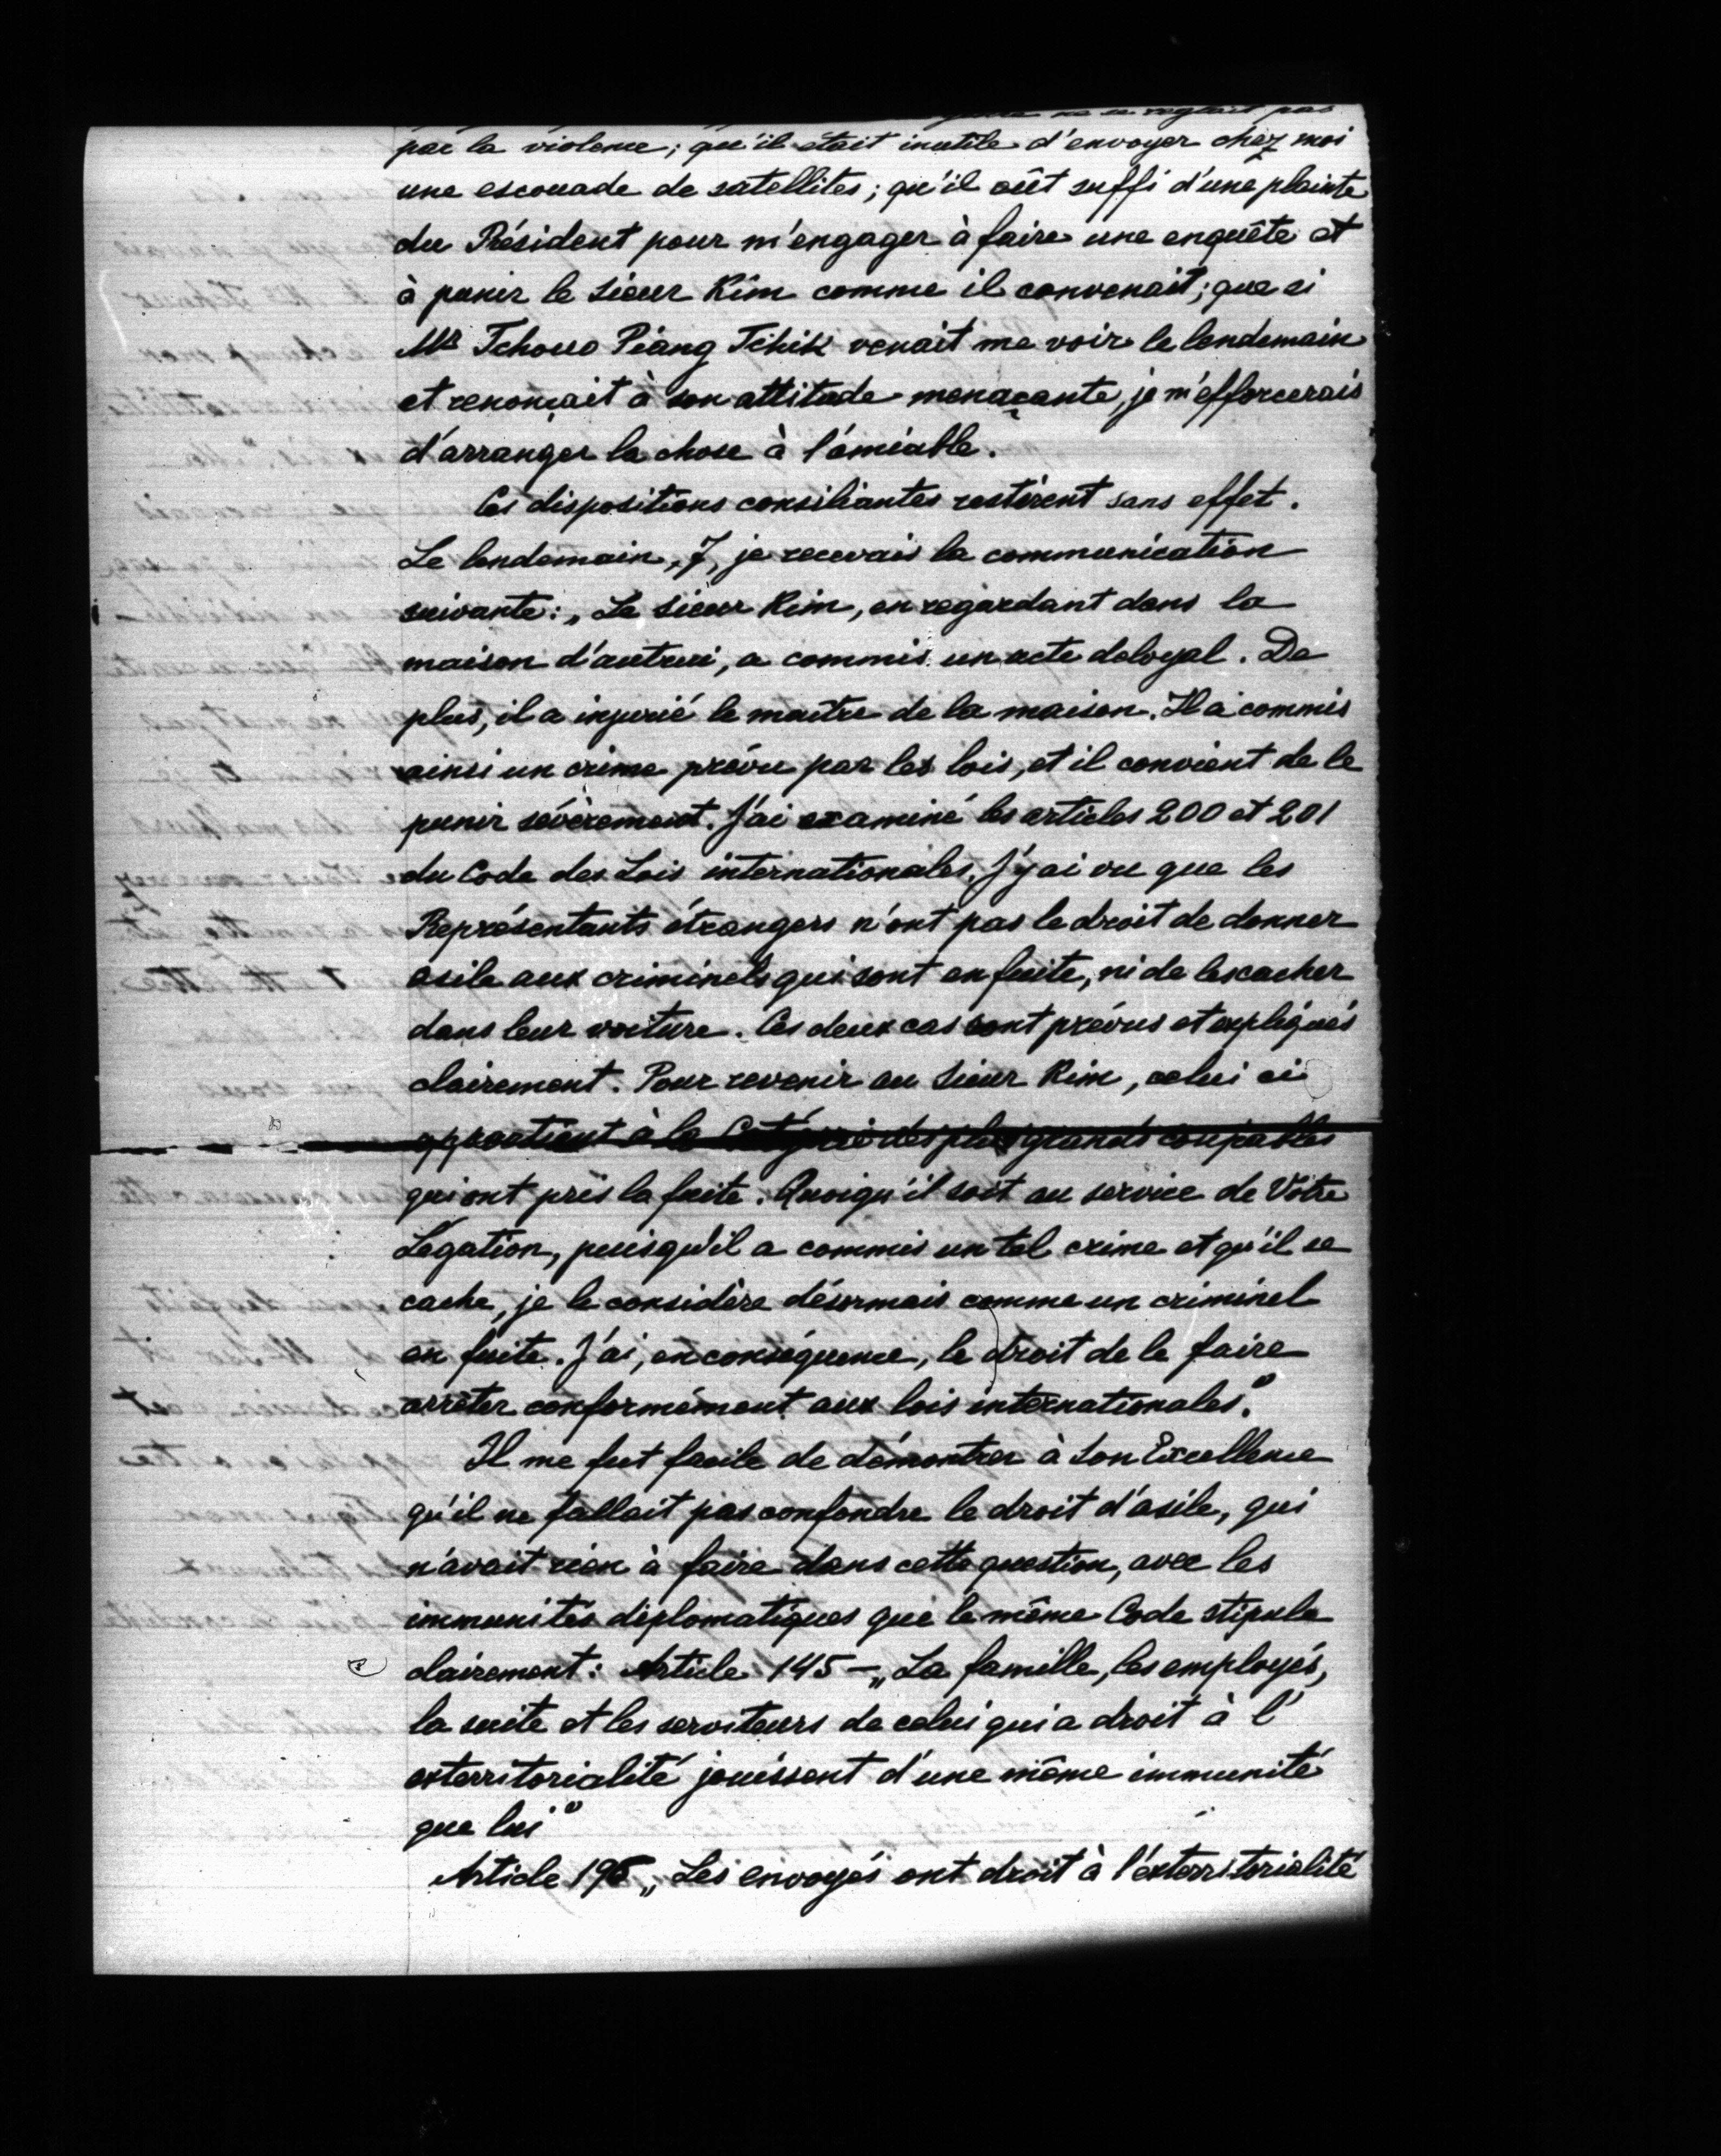 ne se réglait pas
par la violence; qu'il était inutile d'envoyer chez moi
une escouade de satellites; qu'il eût suffi d'une plainte
du Président pour m'engager à faire une enquête et
à punir le sieur Kim comme il convenait; que si
Mr Tchouo Piang Tchik venait me voir le lendemain
et renonçait à son attitude menaçante, je m'efforcerais
d'arranger la chose à l'amiable.
Ces dispositions consiliantes restèrent sans effet.
Le lendemain, 7, je recevais la communication
suivante: „Le sieur Kim, en regardant dans la
maison d'autrui, a commis un acte deloyal. De
plus, il a injurié le maître de la maison. Il a commis
ainsi un crime prévu par les lois, et il convient de le
punir sévèrement. J'ai examiné les articles 200 et 201
du Code des Lois internationales. J'y ai vu que les
Représentants étrangers n'ont pas le droit de donner
asile aux criminels qui sont en fuite, ni de les cacher
dans leur voiture. Ces deux cas sont prévus et expliqués
clairement. Pour revenir au sieur Kim, celui ci
appartient à la Catégorie des plus grands coupables
qui ont pris la fuite. Quoiqu'il soit au service de Votre
Légation, puisqu'il a commis un tel crime et qu'il se
cache, je le considère désormais comme un criminel
en fuite. J'ai, en conséquence, le droit de le faire
arrêter conformément aux lois internationales."
Il me fut facile de démontrer à Son Excellence
qu'il ne fallait pas confondre le droit d'asile, qui
n'avait rien à faire dans cette question, avec les
immunités diplomatiques que le même Code stipule
clairement: Article 145 — „La famille, les employés,
la suite et les serviteurs de celui qui a droit à l'
exterritorialité jouissent d'une même immunité
que lui"
Article 196 „Les envoyés ont droit à l'exterritorialité